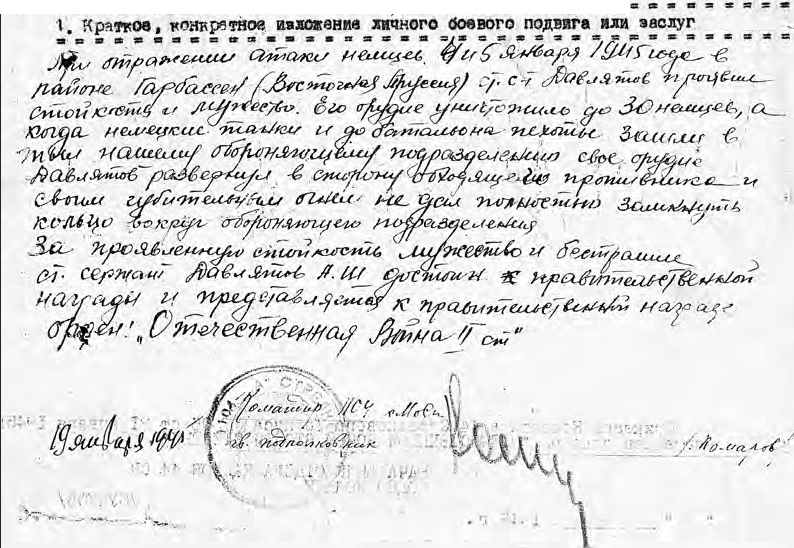 1. Краткое, конкретное изложение личного боевого подвига или заслуг
При отражении атаки немцев 4 и 5 января 1945 года в
районе Гарбассен (Восточная Пруссия) ст. с-т Давлятов проявил
стойкость и мужество. Его орудие уничтожило до 30 немцев, а
когда немецкие танки и до батальона пехоты зашли в
тыл нашему обороняющему подразделению свое орудие
Давлятов развернул в сторону обходящего противника и
своим губительным огнем не дал полностью замкнуть
кольцо вокруг обороняющего подразделения
За проявленную стойкость мужество и бестрашие
ст. сержант Давлятов А.Ш достоин правительственной
награды и представляется к правительственной награде
орден! "Отечественная Война II ст"
Командир
19 января 194
гв. подполковник
/Комаров/